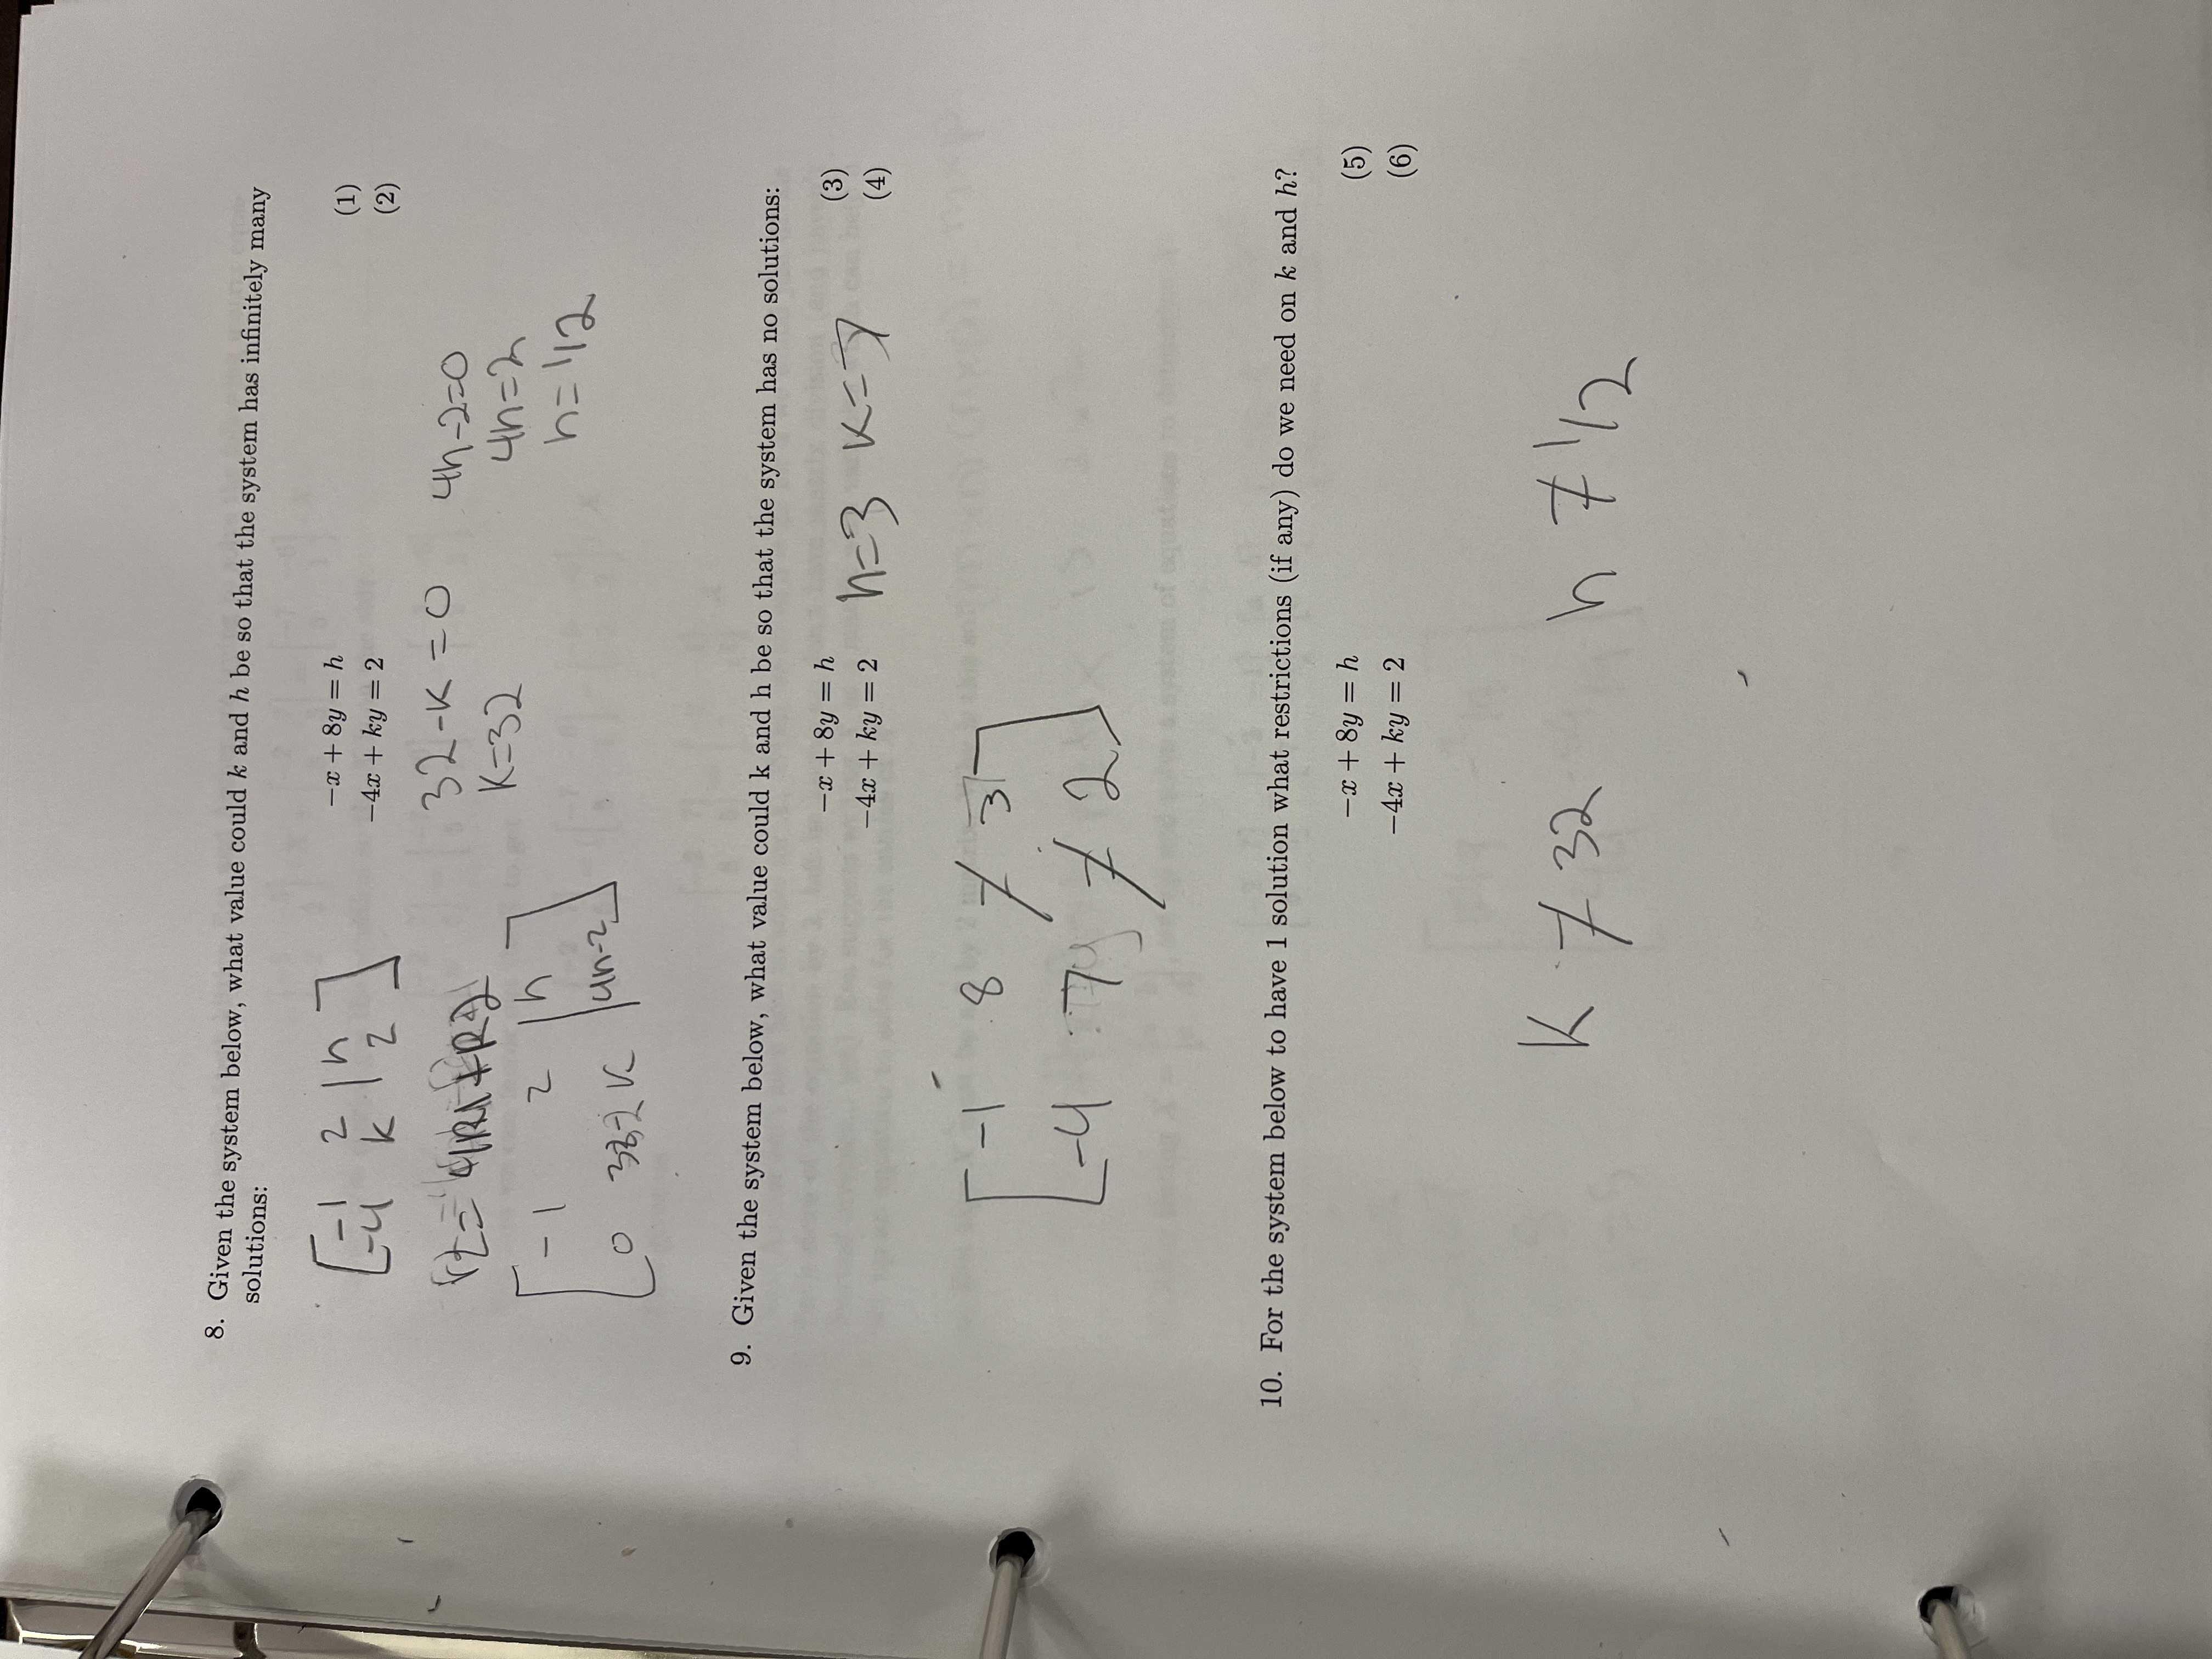 8. Given the system below, what value could k and h be so that the system has infinitely many
solutions:
−x + 8y = h (1)
−4x + ky = 2 (2)
[-1 2 | h
-4 k | 2]
r2= 4R1+R2
32-K=0
K=32
4h-2=0
4h=2
h=1/2
[-1 2 | h
0 K | 4h-2]
9. Given the system below, what value could k and h be so that the system has no solutions:
−x + 8y = h (3)
−4x + ky = 2 (4)
h=3 K=7
[-1 8 ≠ 3
-4 7y ≠ 2]
10. For the system below to have 1 solution what restrictions (if any) do we need on k and h?
−x + 8y = h (5)
−4x + ky = 2 (6)
K ≠ 32 h ≠ 1/2